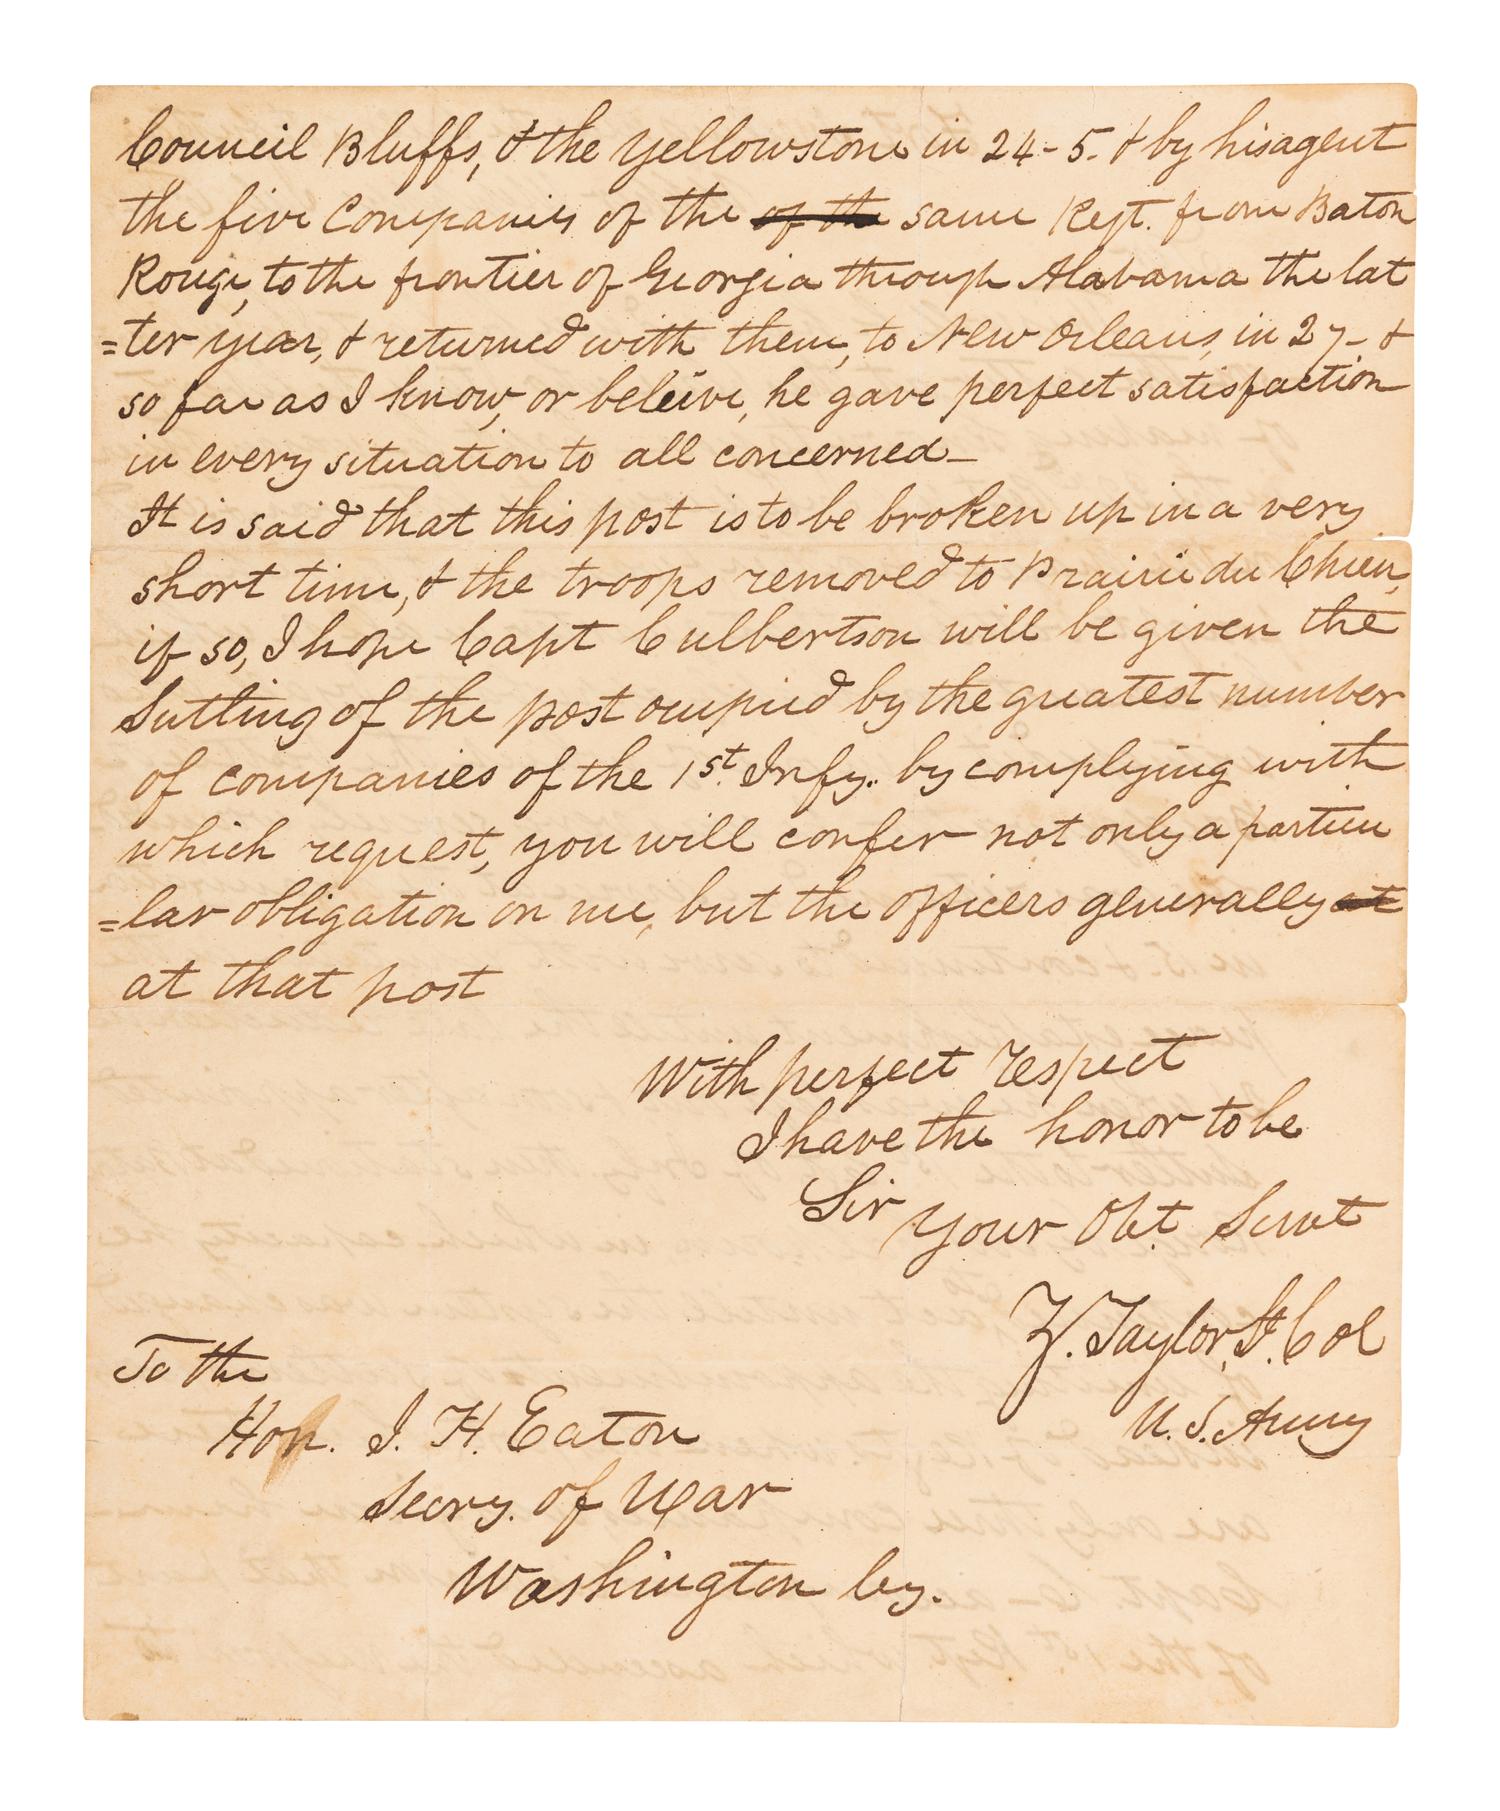 Council Bluffs, & the Yellowstone in 24-5. & by his agent
the five Companies of the of the same Regt. from Baton
Rouge, to the frontier of Georgia through Alabama the lat
=ter year, & returned with them, to New Orleans, in 27- &
so far as I know, or beleive, he gave perfect satisfaction
in every situation to all concerned_
It is said that this post is to be broken up in a very
short time, & the troops removed to Prairie du Chien,
if so, I hope Capt Culbertson will be given the
Sutling of the post ocupied by the greatest number
of companies of the 1st. Infy. by complying with
which request, you will confer not only a particu
=lar obligation on me, but the officers generally at
at that post
With perfect respect
I have the honor to be
Sir
Your Obt. Servt
Z. Taylor, Lt. Col
U. S. Army
To the
Hon. J. H. Eaton
Secry. of War
Washington Cy.